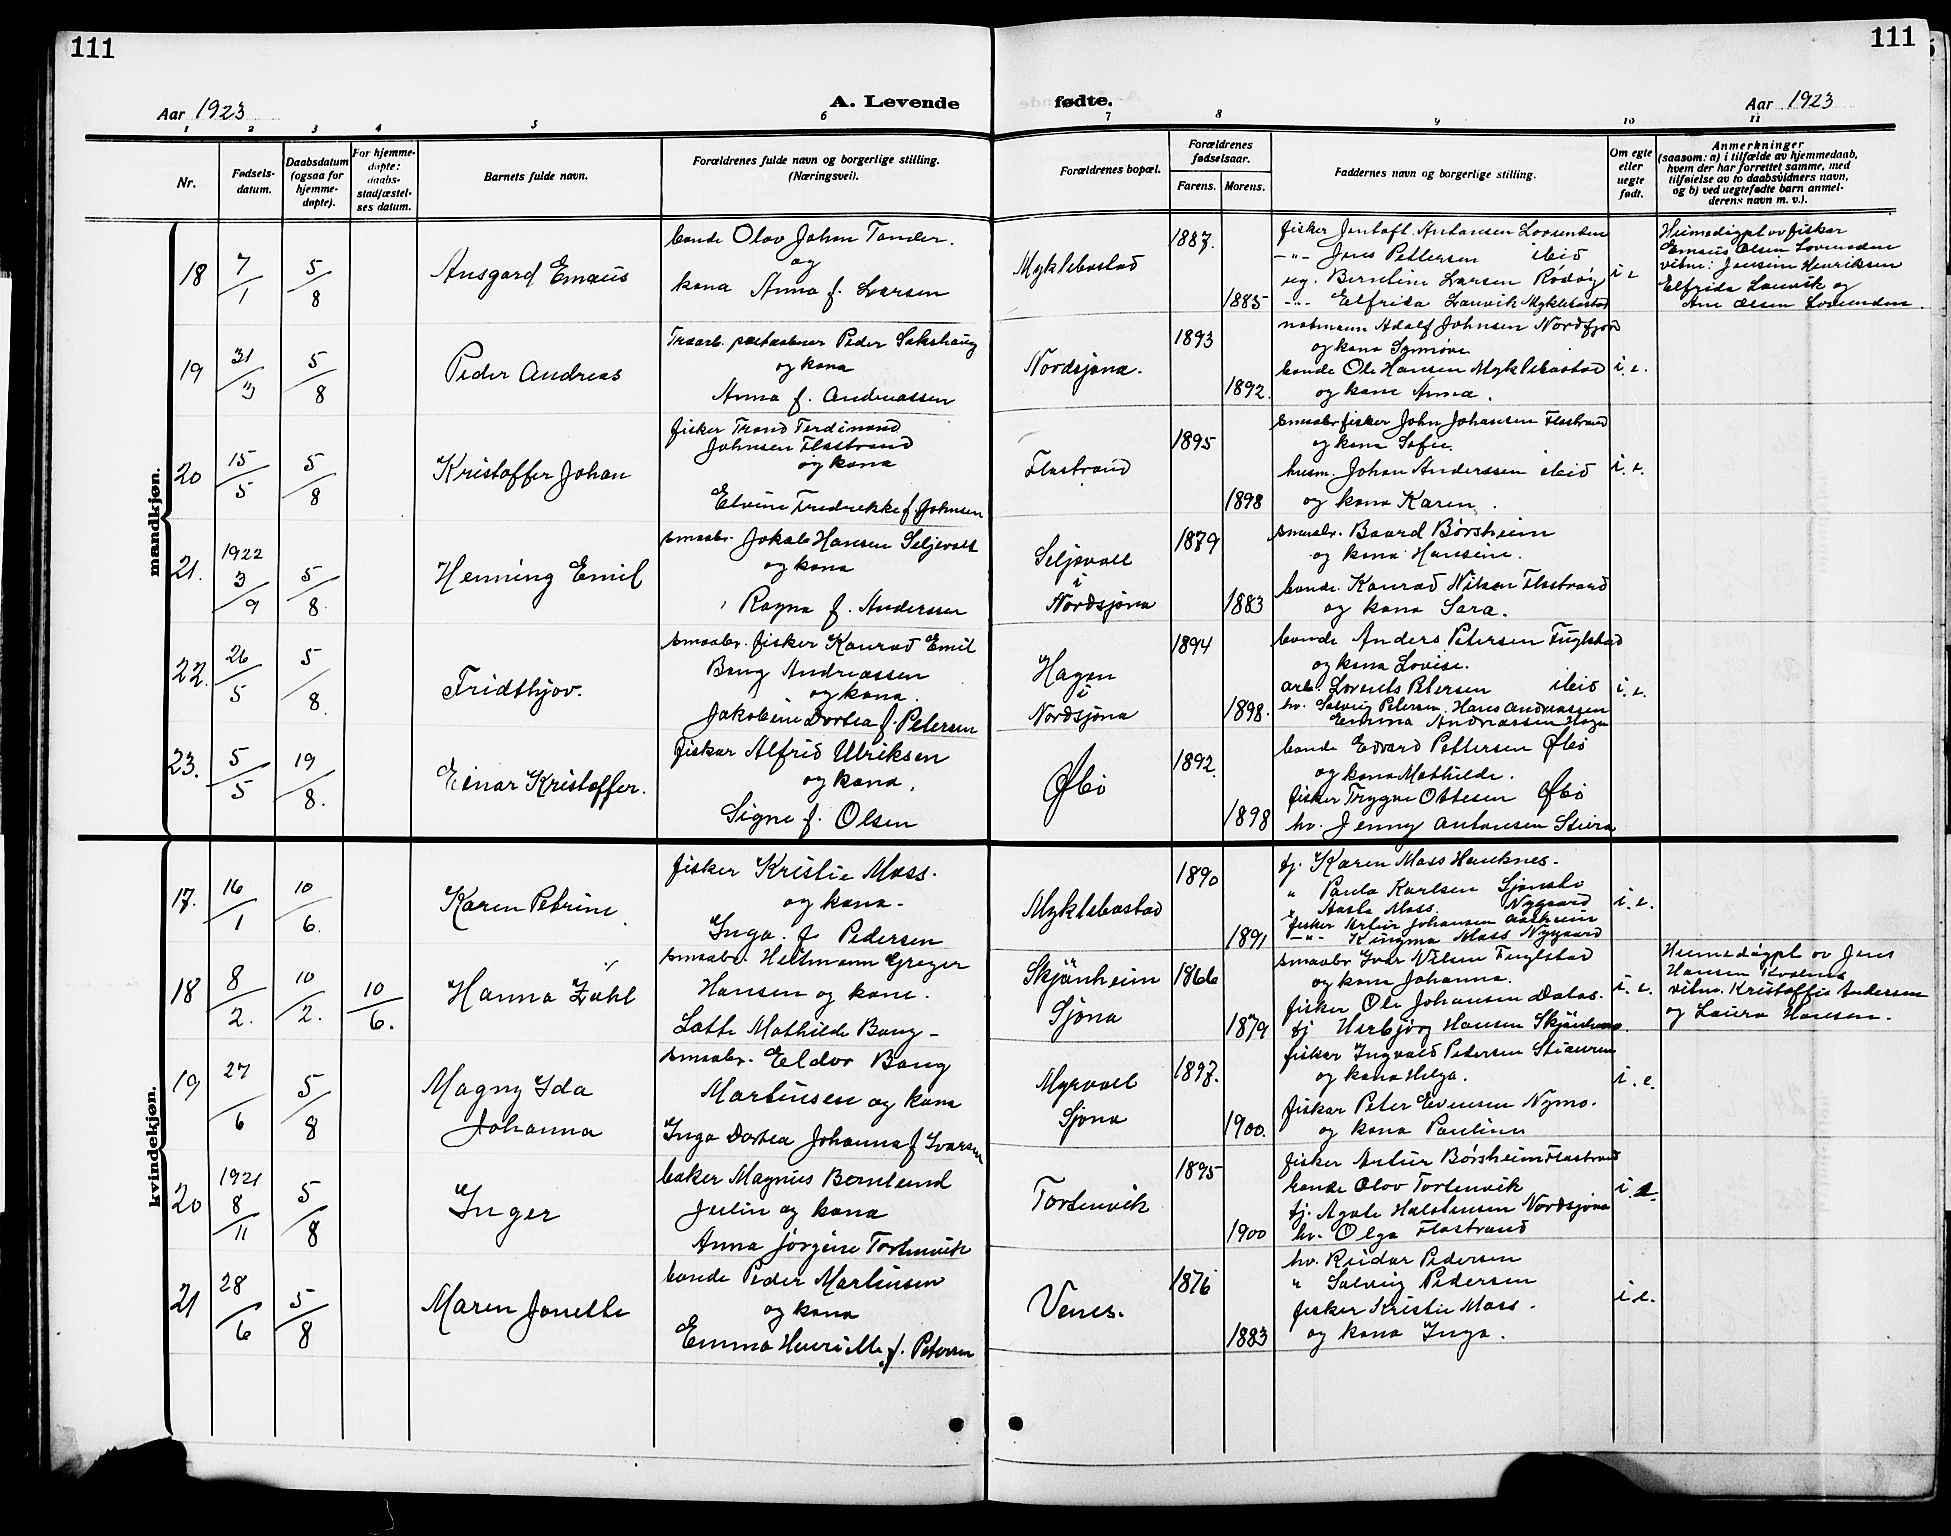 111
111
Aar 1923
A. Levende
fødte.
Aar 1923
1 2 3 4 5 6 7 8 9 10 11
Nr.
Fødsels-
datum.
Daabsdatum
(ogsaa for
hjemme-
døpte).
For hjemme-
døpte:
daabs-
stadfæstel-
ses datum.
Barnets fulde navn.
Forældrenes fulde navn og borgerlige stilling.
(Næringsvei).
Forældrenes bopæl.
Forældrenes
fødselsaar.
Farens. Morens.
Faddernes navn og borgerlige stilling.
Om egte
eller
uegte
født.
Anmerkninger
(saasom: a) i tilfælde av hjemmedaab,
hvem der har forrettet samme, med
tilføielse av to daabsvidners navn,
og b) ved uegtefødte barn anmel-
derens navn m. v.).
mandkjøn.
18
7/1
5/8
Ansgard Emaus
bonde Olav Johan Tander.
og
kona Anna f. Larsen
Myklebostad
1887.
1885
fisker Jentoft Antonsen Lovunden
-"- Jens Pettersen ibid
ug. Berntine Larsen Rødøy
-"- Elfrida Lauvik Myklebostad
i e
Heimedøypt ov fisker
Emaus Olsen Lovunden
vitne: Jensine Henriksen
Elfrida Lauvik og
Ane Olsen Lovunden
19
31/3
5/8
Peder Andreas
Peder Sakshaug
og kona
Anna f. Andreassen
Nordsjona.
1893
1892.
notmann Adolf Johnsen Nordfjord
og kona Synnøve
bonde Ole Hansen Myklebostad
og kone Anna.
i. e.
20
15/5
5/8
Kristoffer Johan
fisker Trond Ferdinand
Johnsen Flostrand
og kona
Elvine Fredrekke f. Johnsen
Flostrand
1895
1898
smaabr fisker John Johansen Flostrand
og kona Sofie.
husm. Johan Anderssen ibid
og kona Karen.
i. e.
21.
1922
3/9
5/8.
Henning Emil
smaabr. Jakob Hansen Seljevoll
og kona
Ragna f. Anderssen
Seljevoll
i
Nordsjona
1879
1883
smaabr. Baard Børsheim
og kona Hansine.
bonde. Konrad Nilsen Flostrand
og kona Sara.
22.
26/5
5/8
Fridthjov.
smaabr. fisker Konrad Emil
Bang Andreassen
og kona.
Jakobine Dortea f. Petersen
Hagen
i
Nordsjona
1894
1898.
bonde Anders Petersen Fuglstad
og kona Lovise.
arb. Lorents Petersen ibid
hv. Solveig Petersen. Hans Andreassen
Emma Andreassen Hagen
i. e.
23.
5/5
19/8.
Einar Kristoffer.
fisker Alfrid Ulriksen
og kona.
Signe f. Olsen
Øbø
1892.
1898
bonde Edvard Pettersen Øbø
og kona Mathilde.
fisker Trygve Ottesen Øbø
hv. Jenny Antonsen
kvindekjøn.
17.
16/1
10/6.
Karen Petrine
fisker Kristie Moss.
og kona.
Inga. f Pedersen
Myklebostad
1890
1891
tj. Karen Moss Hauknes.
" Paula Karlsen
" Moss. Nygaard
fisker Artur Johansen Aasheim
-"- Moss Nygaard
i. e.
18
8/2.
10/2.
10/6.
Hanna Zahl
smaabr. Heitmann Greger
Hansen og kone.
Lotte Mathilde Bang -
Skjånheim
Sjona
1866
1879
smaabr Ivar Nilsen Fuglstad
og kona Johanna.
fisker Ole Johansen
tj Herbjørg Hansen Skjånheim.
i. e.
Heimedøypt ov Jens
Hansen
vitne. Kristoffer Andersen
og Laura Hansen.
19
27/6
5/8
Magny Ida
Johanna
smaabr. Eldor Bang
Martinsen og kona
Inga Dortea Johanna f Ivarsen
Myrvoll
Sjona
1897.
1900.
fisker Ingvald Pedersen
og kona Helga.
fisker Peter Evensen Nymo.
og kona Pauline
i. e.
20
1921
8/11
5/8
Inger
baker Magnus Berntsend
Julin og kona
Anna Jørgine Tortenvik
Tortenvik
1895
1900
fisker Artur Børsheim Flostrand
bonde Olov Tortenvik
tj. Agate Halstensen Nordsjona
hv. Olga Flostrand
i. e.
21
28/6
5/8
Maren Jonette
bonde Peder Martinsen
og kona
Emma Henriette. f. Petersen
Venes.
1876
1883
hv. Reidar Pedersen
" Solveig Pedersen
fisker Kristie Moss.
og kona Inga.
i. e.